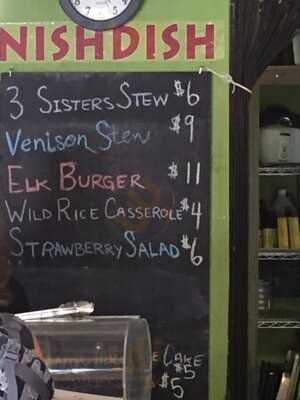 NISHDISH
3 SISTERS STEW $6
Venison Stew $9
ELK BURGER $11
WILD RICE CASSEROLE $4
STRAWBERRY SALAD $6
CAKE
$5
$5